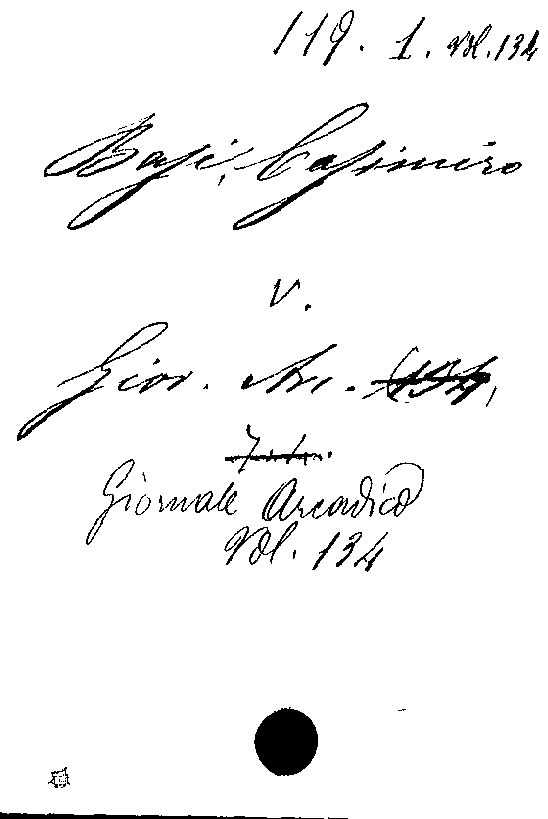 119. 1. Vol. 134
Basi, Casimiro
v.
Gior. Arc. (134,
Giornale Arcadico
Vol. 134